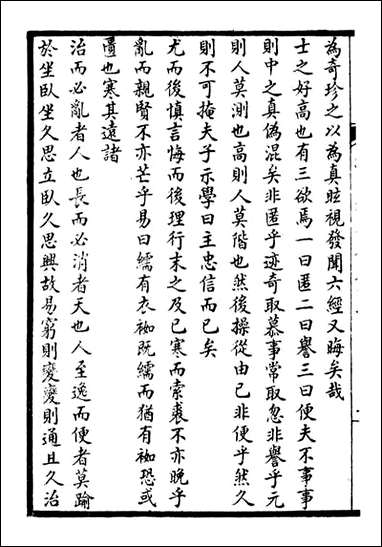 為奇珍之以為真眩視發聞六經又晦矣哉
士之好高也有三欲焉一曰匿二曰譽三曰便夫不事事
則中之真偽混矣非匿乎迹奇取慕事常取忽非譽乎元
則人莫測也高則人莫階也然後操從由已非便乎然久
則不可掩夫子示學曰主忠信而已矣
尤而後慎言悔而後理行末之及已寒而索裘不亦晚乎
亂而親賢不亦芒乎易曰繻有衣袽既繻而猶有袽恐或
濕也寒其遠諸
治而必亂者人也長而必消者天也人至逸而便者莫踰
於坐臥坐久思立臥久思興故易窮則變變則通且久治